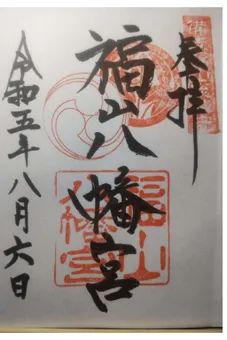 奉拝
福山八幡宮
福山八幡宮
令和五年八月六日